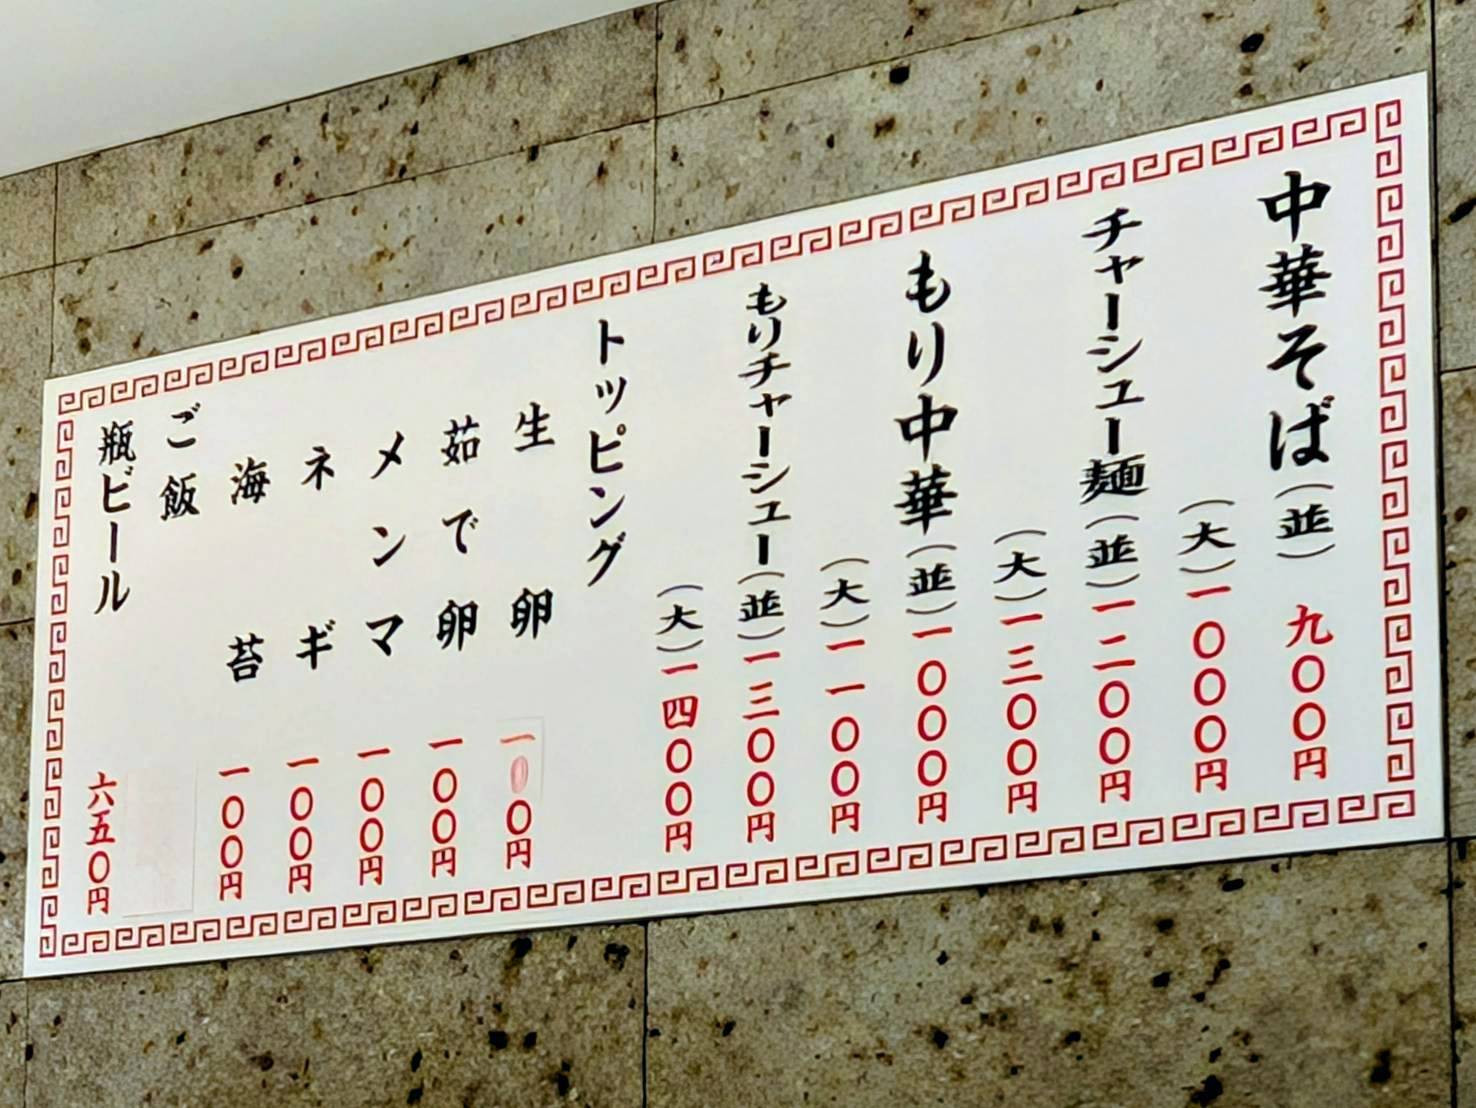 中華そば(並)九〇〇円
(大)一〇〇〇円
チャーシュー麺(並)一二〇〇円
(大)一三〇〇円
もり中華(並)一〇〇〇円
(大)一一〇〇円
もりチャーシュー(並)一三〇〇円
(大)一四〇〇円
トッピング
生卵 一〇〇円
茹で卵 一〇〇円
メンマ 一〇〇円
ネギ 一〇〇円
海苔 一〇〇円
ご飯
瓶ビール 六五〇円